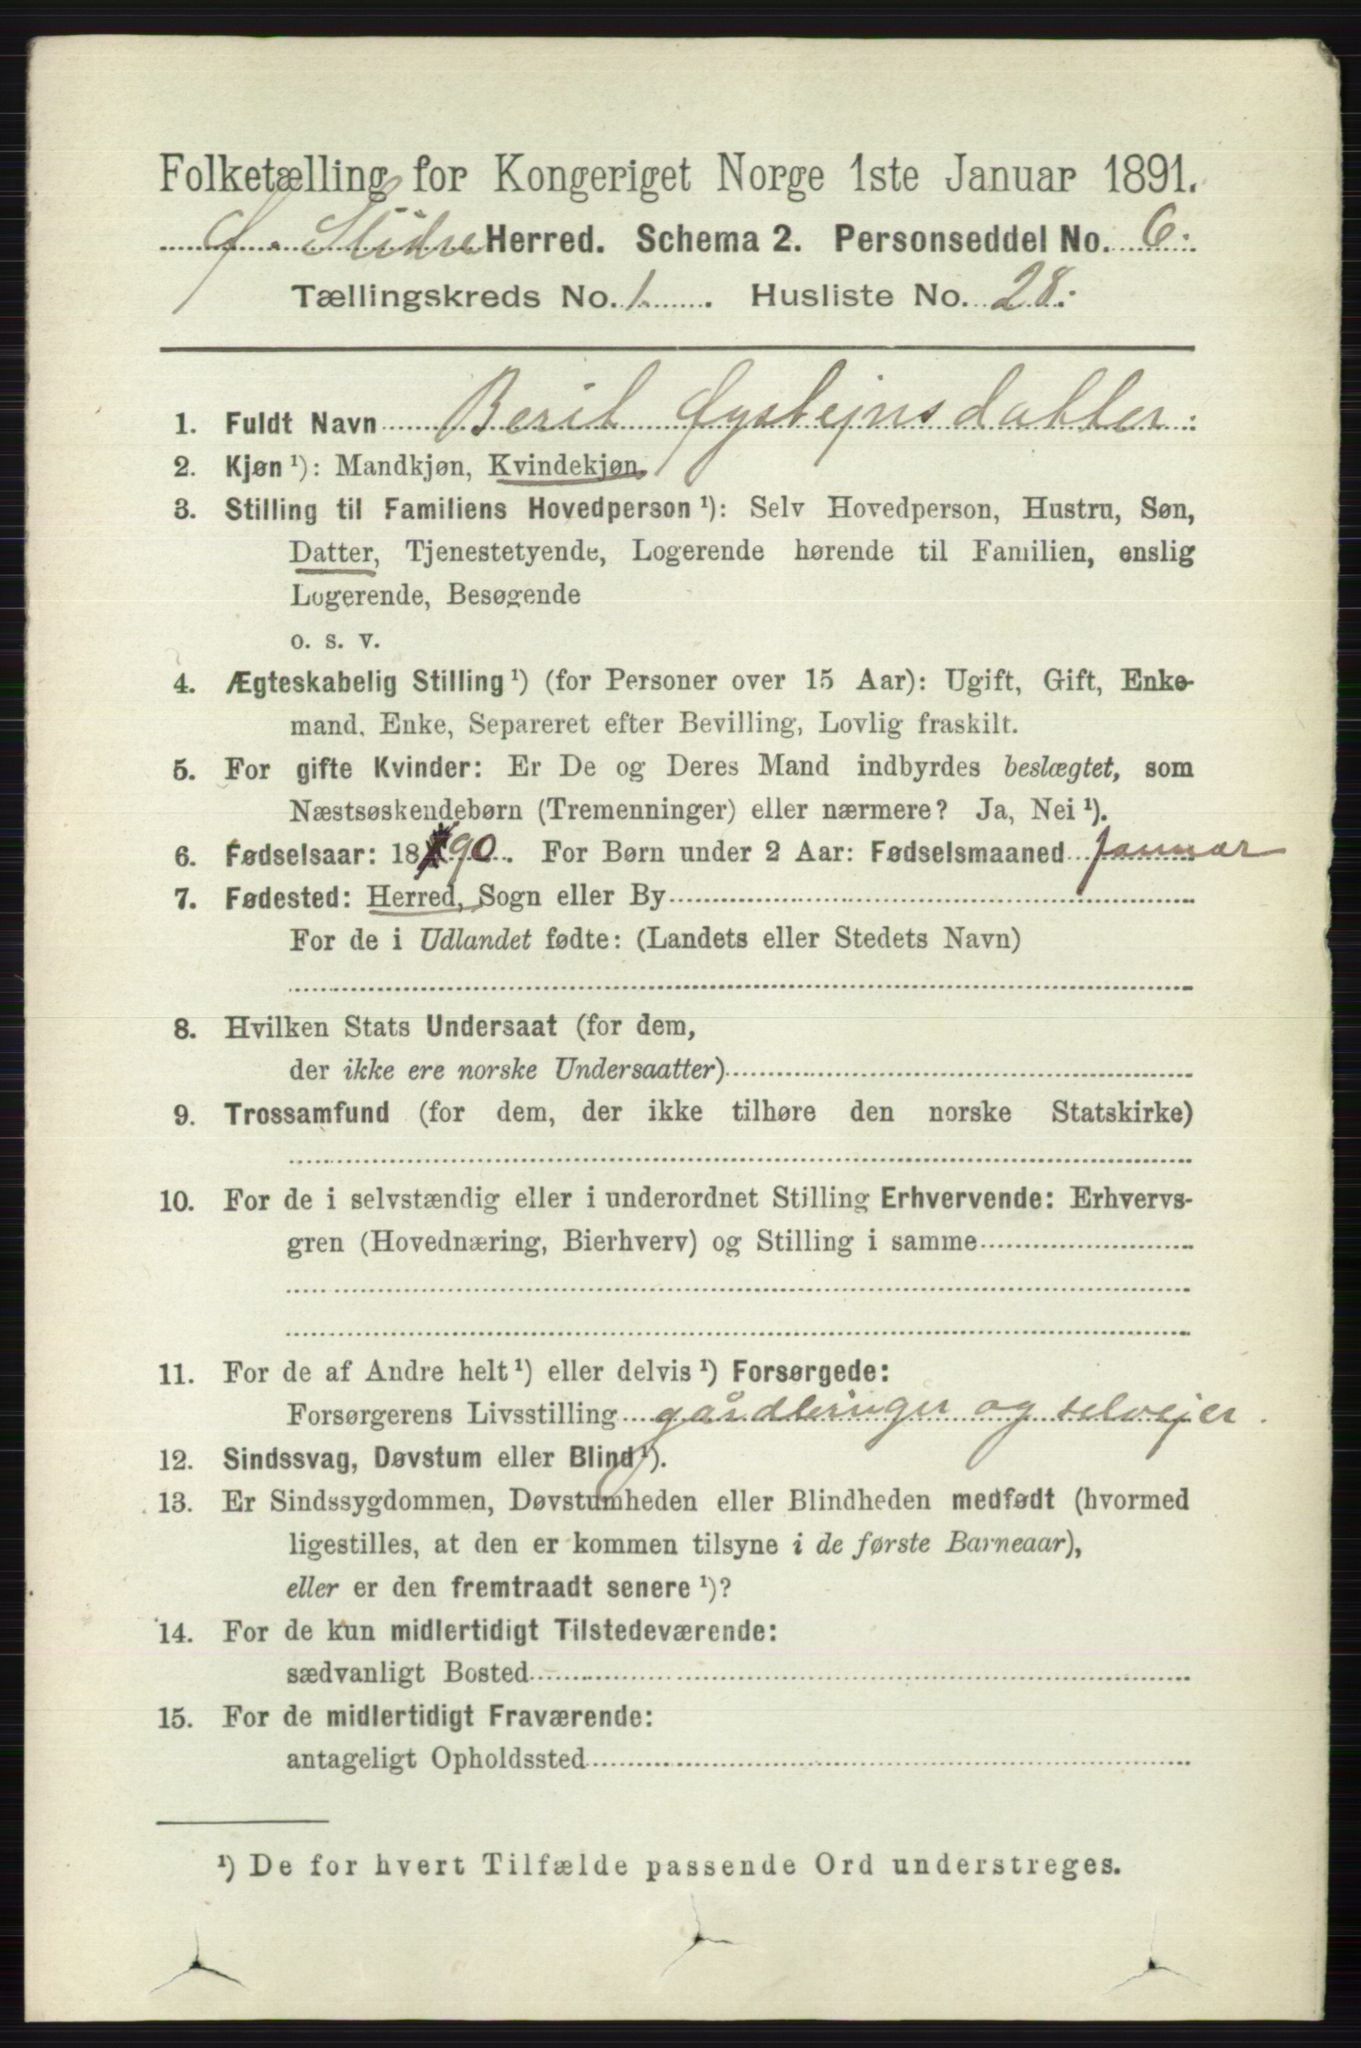 Folketælling for Kongeriget Norge 1ste Januar 1891.
Ø. Slidre Herred. Schema 2. Personseddel No. 6.
Tællingskreds No. 1. Husliste No. 28.
1. Fuldt Navn Berit Øysteinsdatter.
2. Kjøn ¹): Mandkjøn, Kvindekjøn.
3. Stilling til Familiens Hovedperson ¹): Selv Hovedperson, Hustru, Søn,
Datter, Tjenestetyende, Logerende hørende til Familien, enslig
Logerende, Besøgende
o. s. v.
4. Ægteskabelig Stilling ¹) (for Personer over 15 Aar): Ugift, Gift, Enke-
mand, Enke, Separeret efter Bevilling, Lovlig fraskilt.
5. For gifte Kvinder: Er De og Deres Mand indbyrdes beslægtet, som
Næstsøskendebørn (Tremenninger) eller nærmere? Ja, Nei ¹).
6. Fødselsaar: 1890. For Børn under 2 Aar: Fødselsmaaned Januar
7. Fødested: Herred, Sogn eller By
For de i Udlandet fødte: (Landets eller Stedets Navn)
8. Hvilken Stats Undersaat (for dem,
der ikke ere norske Undersaatter)
9. Trossamfund (for dem, der ikke tilhøre den norske Statskirke)
10. For de i selvstændig eller i underordnet Stilling Erhvervende: Erhvervs-
gren (Hovednæring, Bierhverv) og Stilling i samme
11. For de af Andre helt ¹) eller delvis ¹) Forsørgede:
Forsørgerens Livsstilling gårdbruger og selvejer.
12. Sindssvag, Døvstum eller Blind ¹).
13. Er Sindssygdommen, Døvstumheden eller Blindheden medfødt (hvormed
ligestilles, at den er kommen tilsyne i de første Barneaar),
eller er den fremtraadt senere ¹)?
14. For de kun midlertidigt Tilstedeværende:
sædvanligt Bosted
15. For de midlertidigt Fraværende:
antageligt Opholdssted
¹) De for hvert Tilfælde passende Ord understreges.